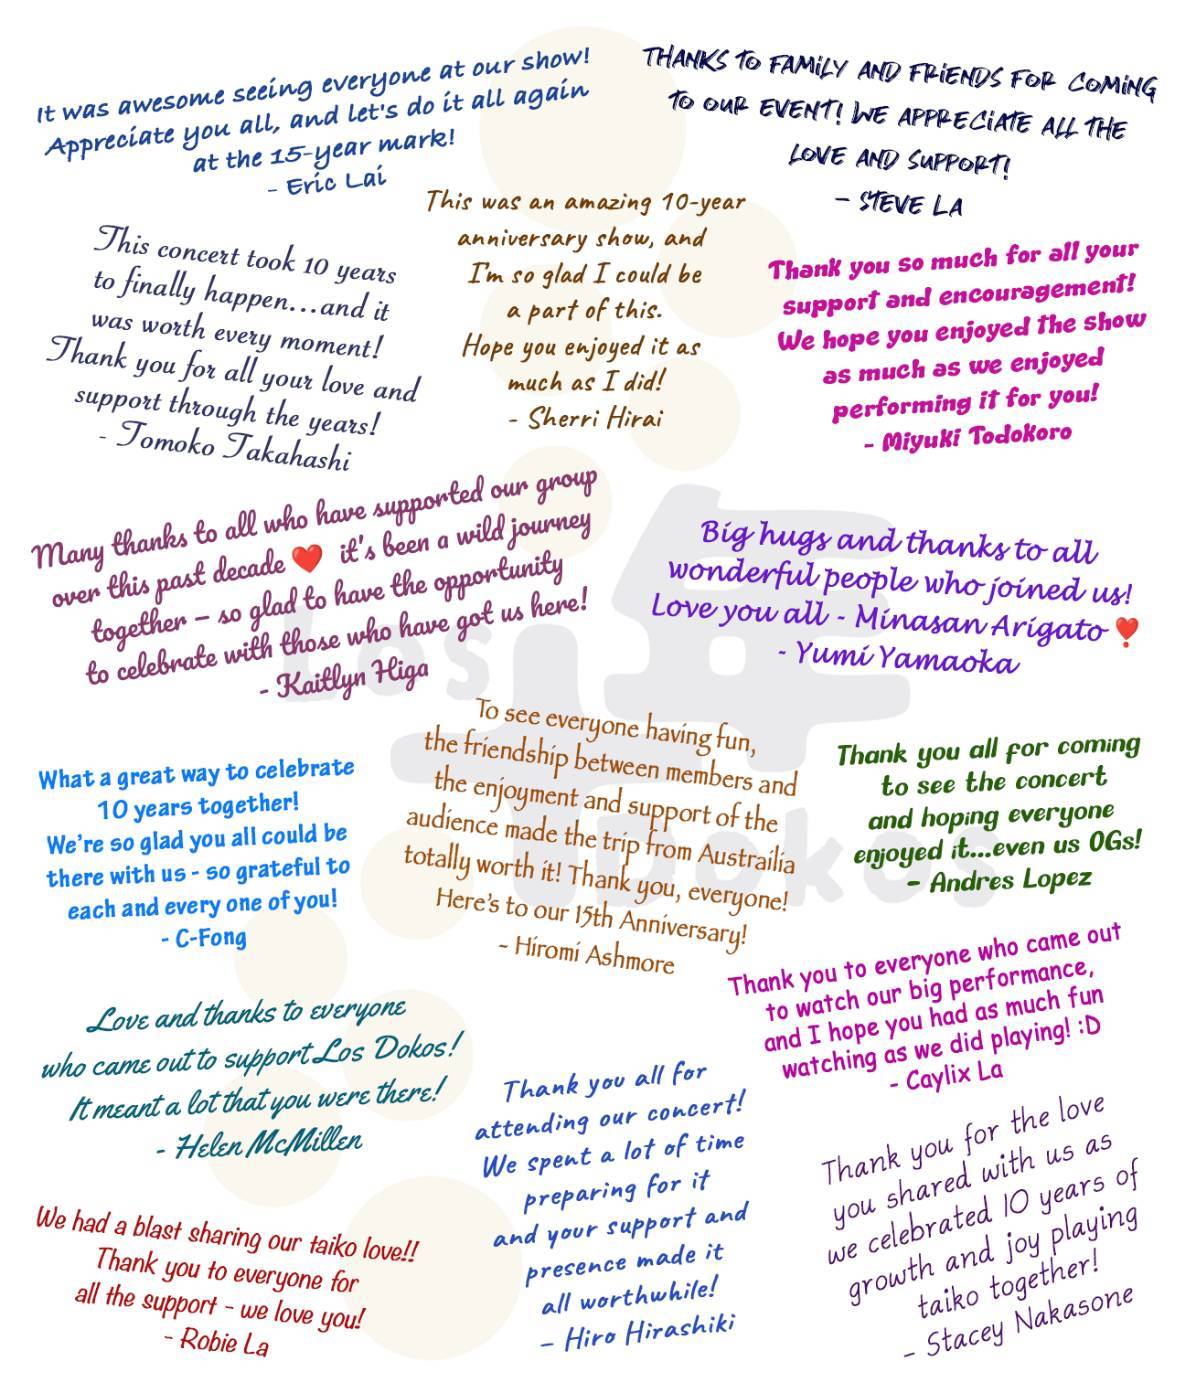 It was awesome seeing everyone at our show!
Appreciate you all, and let's do it all again
at the 15-year mark!
- Eric Lai
THANKS TO FAMILY AND FRIENDS FOR COMING
TO OUR EVENT! WE APPRECIATE ALL THE
LOVE AND SUPPORT!
– STEVE LA
This concert took 10 years
to finally happen...and it
was worth every moment!
Thank you for all your love and
support through the years!
- Tomoko Takahashi
This was an amazing 10-year
anniversary show, and
I'm so glad I could be
a part of this.
Hope you enjoyed it as
much as I did!
- Sherri Hirai
Thank you so much for all your
support and encouragement!
We hope you enjoyed the show
as much as we enjoyed
performing it for you!
- Miyuki Todokoro
Many thanks to all who have supported our group
over this past decade ❤️ it's been a wild journey
together – so glad to have the opportunity
to celebrate with those who have got us here!
- Kaitlyn Higa
Big hugs and thanks to all
wonderful people who joined us!
Love you all - Minasan Arigato ❣️
- Yumi Yamaoka
Los
Dokos
What a great way to celebrate
10 years together!
We're so glad you all could be
there with us - so grateful to
each and every one of you!
- C-Fong
To see everyone having fun,
the friendship between members and
the enjoyment and support of the
audience made the trip from Austrailia
totally worth it! Thank you, everyone!
Here's to our 15th Anniversary!
- Hiromi Ashmore
Thank you all for coming
to see the concert
and hoping everyone
enjoyed it...even us OGs!
– Andres Lopez
Thank you to everyone who came out
to watch our big performance,
and I hope you had as much fun
watching as we did playing! :D
- Caylix La
Love and thanks to everyone
who came out to support Los Dokos!
It meant a lot that you were there!
- Helen McMillen
Thank you all for
attending our concert!
We spent a lot of time
preparing for it
and your support and
presence made it
all worthwhile!
– Hiro Hirashiki
Thank you for the love
you shared with us as
we celebrated 10 years of
growth and joy playing
taiko together!
- Stacey Nakasone
We had a blast sharing our taiko love!!
Thank you to everyone for
all the support - we love you!
- Robie La